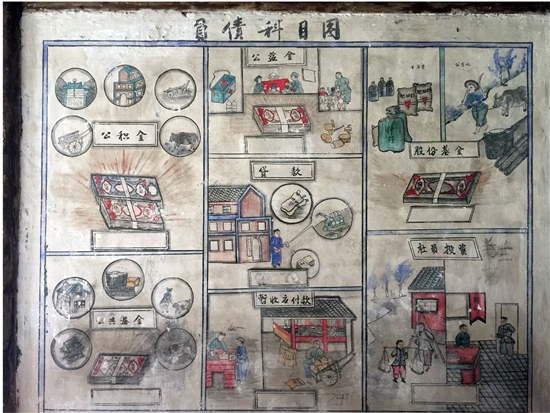 負債科目图
公益金
公积金
股份基金
貸款
社員投資
暫收应付款
公共基金